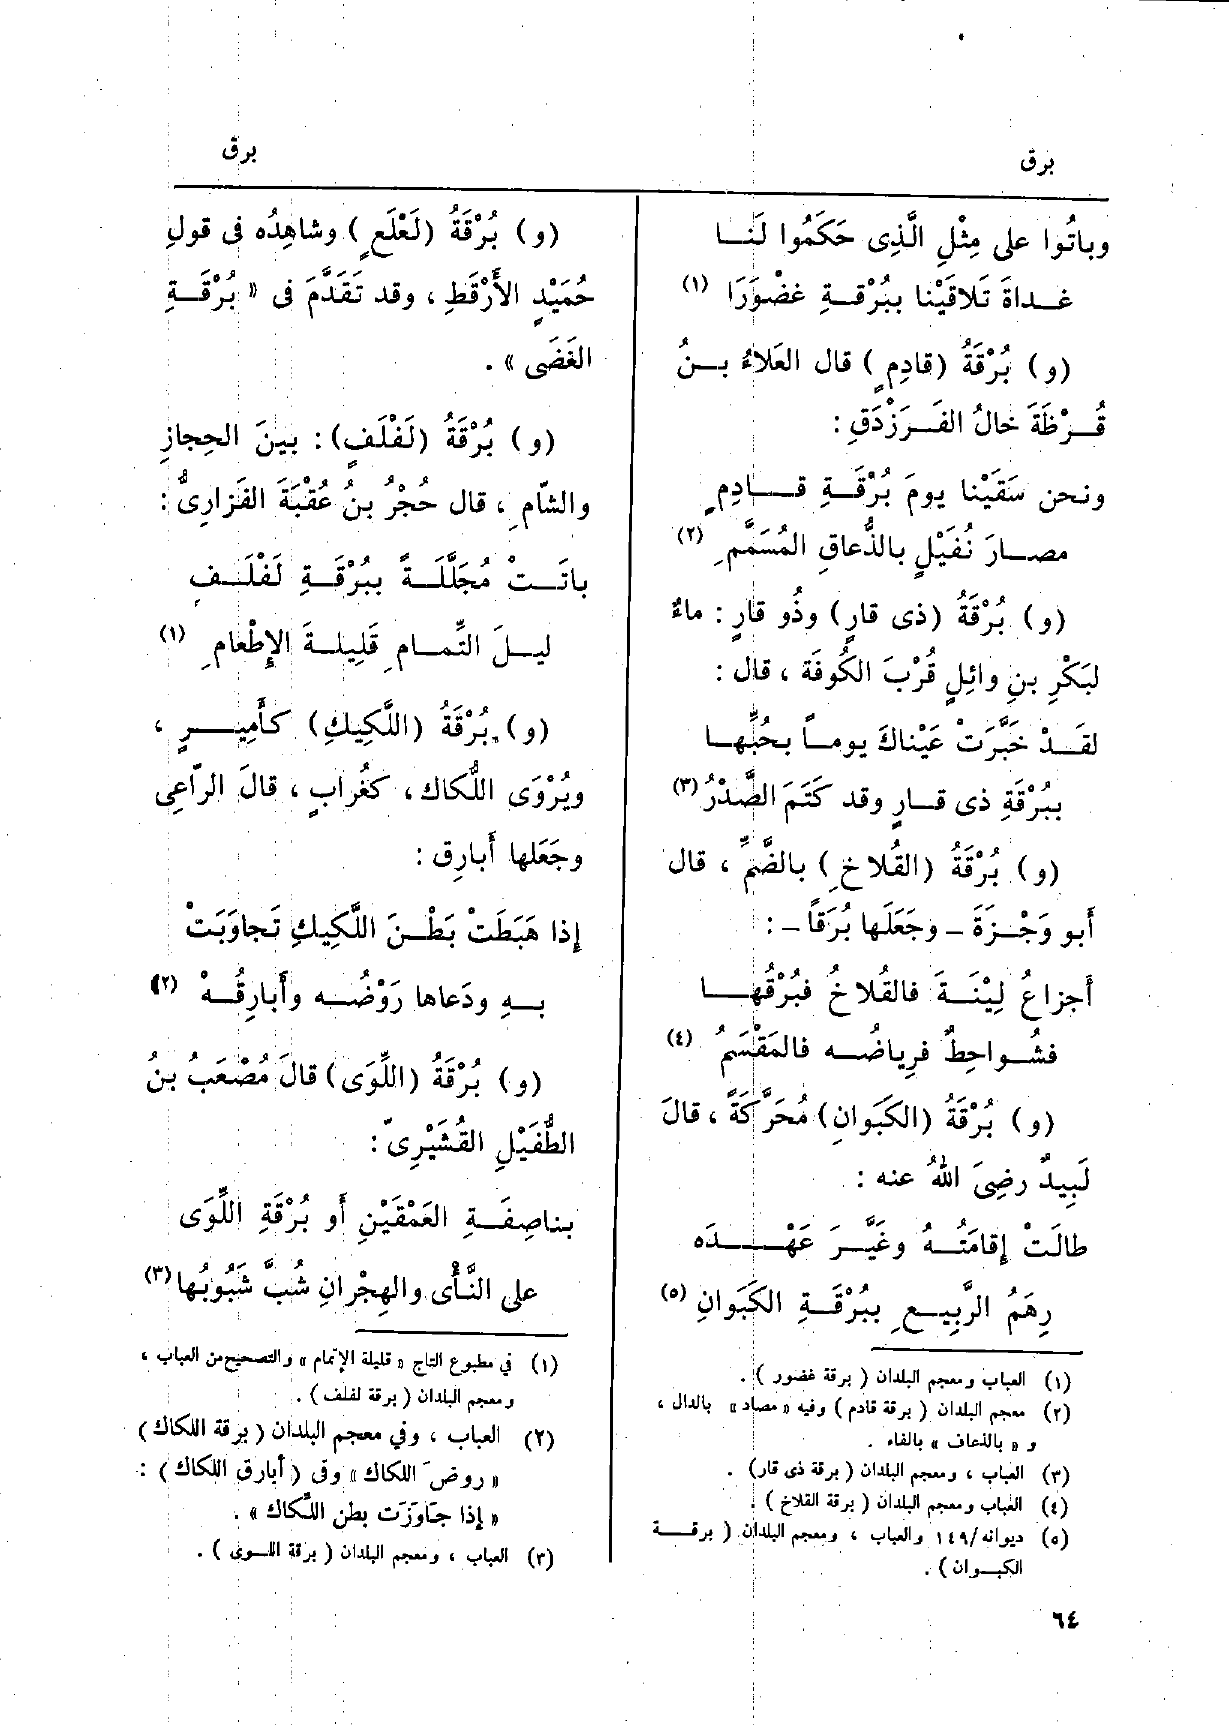 برق
برق
وباتُوا على مِثْلِ الَّذِى حَكَمُوا لَنــا
غــداةَ تَلاقَيْنا ببُرْقــةِ غضْوَرَا (١)
(و) بُرْقَةُ (قادِمٍ) قال العَلاءُ بــنُ
قُــرْظَةَ خالُ الفَــرَزْدَقِ:
ونحن سَقَيْنا يومَ بُرْقَــةِ قــادِمٍ
مصــارَ نُفَيْلٍ بالذُّعاقِ المُسَمَّمِ (٢)
(و) بُرْقَةُ (ذى قارٍ) وذُو قارٍ: ماءٌ
لبَكْرِ بنِ وائِلٍ قُرْبَ الكُوفَة، قال:
لقَــدْ خَبَّرَتْ عَيْناكَ يومــاً بحُبِّهــا
ببُرْقَةِ ذى قــارٍ وقد كَتَمَ الصَّدْرُ (٣)
(و) بُرْقَةُ (القُلاخِ) بالضَّمِّ، قال
أبو وَجْــزَةَ - وجَعَلَها بُرَقاً - :
أجزاعُ لِيْنَــةَ فالقُلاخُ فبُرْقُهــا
فشُــواحِطٌ فرِياضُــه فالمَقْسَمُ (٤)
(و) بُرْقَةُ (الكَبَوانِ) مُحَرَّكَةً، قالَ
لَبِيدٌ رضِىَ اللهُ عنه :
طالَتْ إقامَتُــهُ وغَيَّــرَ عَهْــدَه
رِهَمُ الرَّبِيــعِ ببُرْقَــةِ الكَبَوانِ (٥)
(١) العباب ومعجم البلدان ( برقة غضور ) .
(٢) معجم البلدان ( برقة قادم ) وفيه « مصاد » بالدال ،
و « بالذعاف » بالفاء .
(٣) العباب ، ومعجم البلدان ( برقة ذى قار) .
(٤) العباب ومعجم البلدان ( برقة القلاخ ) .
(٥) ديوانه/١٤٩ والعباب ، ومعجم البلدان ( برقــة
الكبــوان ) .
٦٤
(و) بُرْقَةُ (لَعْلَعٍ) وشاهِدُه فى قولِ
حُمَيْدٍ الأَرْقَطِ، وقد تَقَدَّمَ فى « بُرْقَــةِ
الغَضَى » .
(و) بُرْقَةُ (لَفْلَفٍ): بينَ الحِجازِ
والشّامِ، قال حُجْرُ بنُ عُقْبَةَ الفَزارِىُّ:
باتَــتْ مُجَلَّلَــةً ببُرْقَــةِ لَفْلَــفٍ
ليــلَ التِّمــامِ قَلِيلــةَ الإِطْعامِ (١)
(و) بُرْقَةُ (اللَّكِيكِ) كأَمِيــرٍ،
ويُرْوَى اللُّكاك، كغُرابٍ، قالَ الرّاعِى
وجَعَلها أَبارِق :
إذا هَبَطَتْ بَطْــنَ اللَّكِيكِ تَجاوَبَتْ
بــهِ ودَعاها رَوْضُــه وأَبارِقُــهْ (٢)
(و) بُرْقَةُ (اللِّوَى) قالَ مُصْعَبُ بنُ
الطُّفَيْلِ القُشَيْرِىّ:
بناصِفَــةِ العَمْقَيْنِ أو بُرْقَةِ اللِّوَى
على النَّأْى والهِجْرانِ شُبَّ شَبُوبُها (٣)
(١) في مطبوع التاج « قليلة الإتمام » والتصحيح من العباب ،
ومعجم البلدان ( برقة لفلف ) .
(٢) العباب ، وفي معجم البلدان ( برقة اللكاك )
« روضَ اللكاك » وفى ( أبارق اللكاك ) :
« إذا جاوَزَت بطن اللُّكاك » .
(٣) العباب ، ومعجم البلدان ( برقة اللــوى ) .